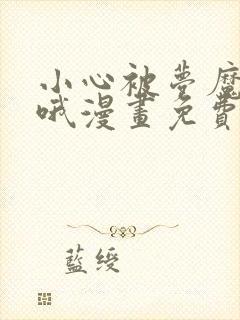 小心被夢魔
哦漫畫免費
藍綬